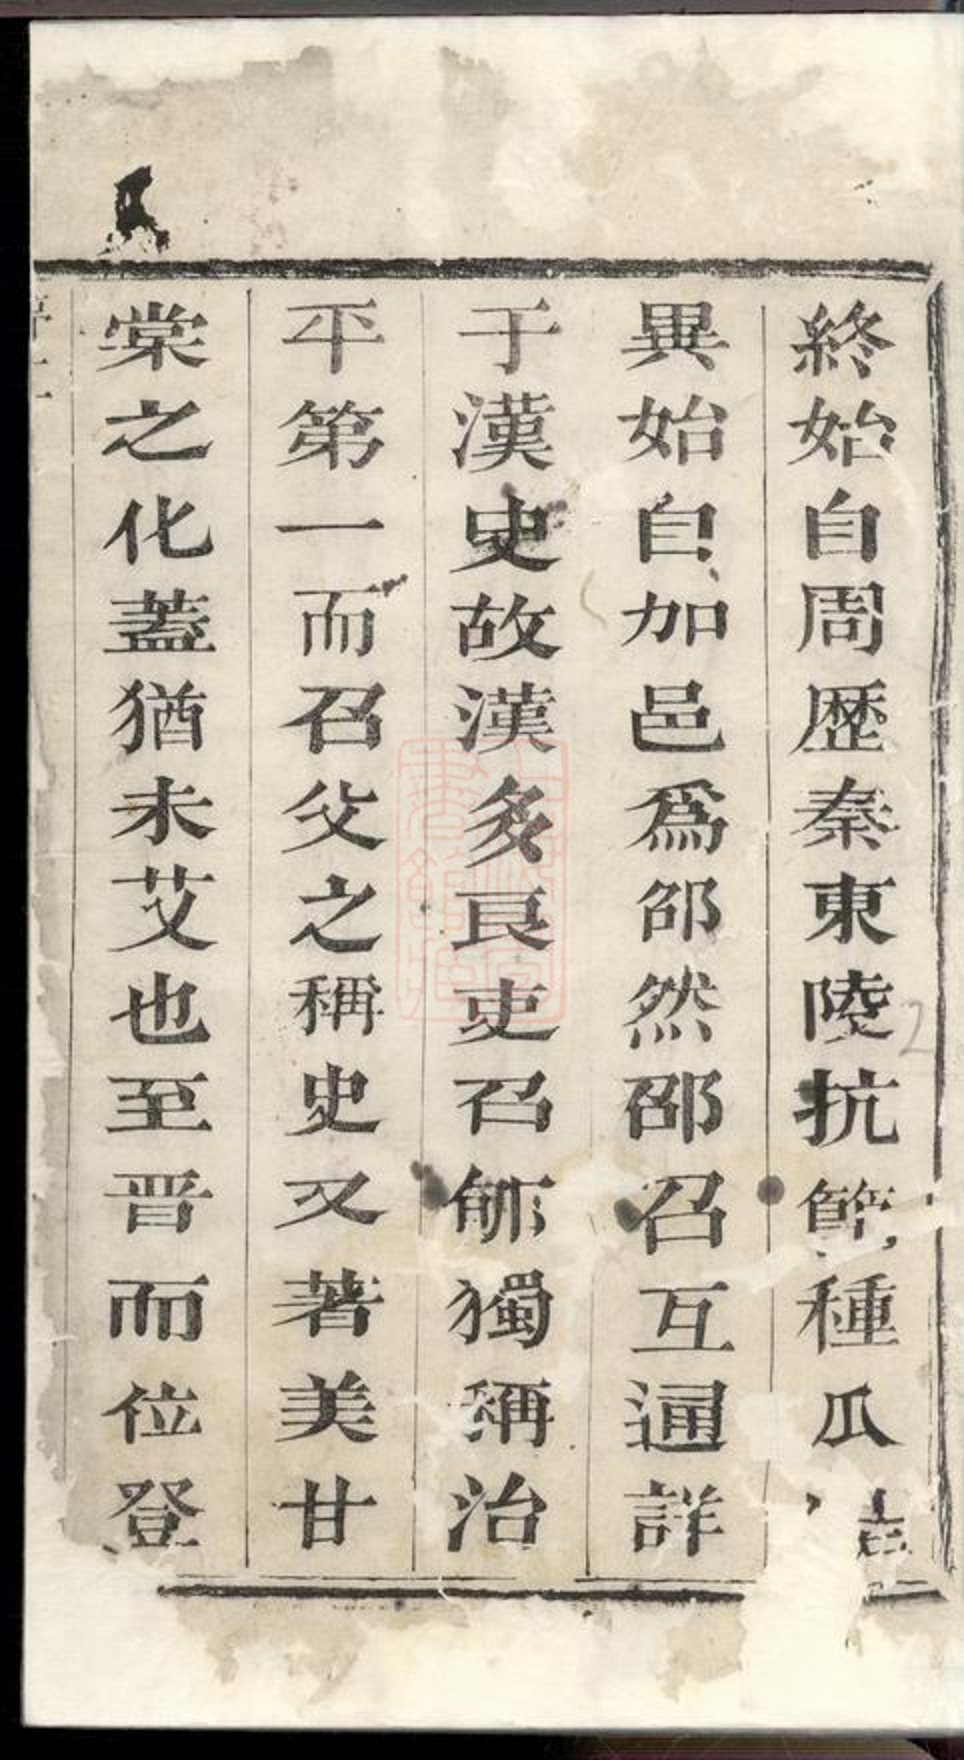 終始自周歷秦東陵抗節種瓜
異始自加邑爲邵然邵召互通詳
于漢史故漢多良吏召郇獨稱治
平第一而召父之稱史又著美甘
棠之化蓋猶未艾也至晋而位登